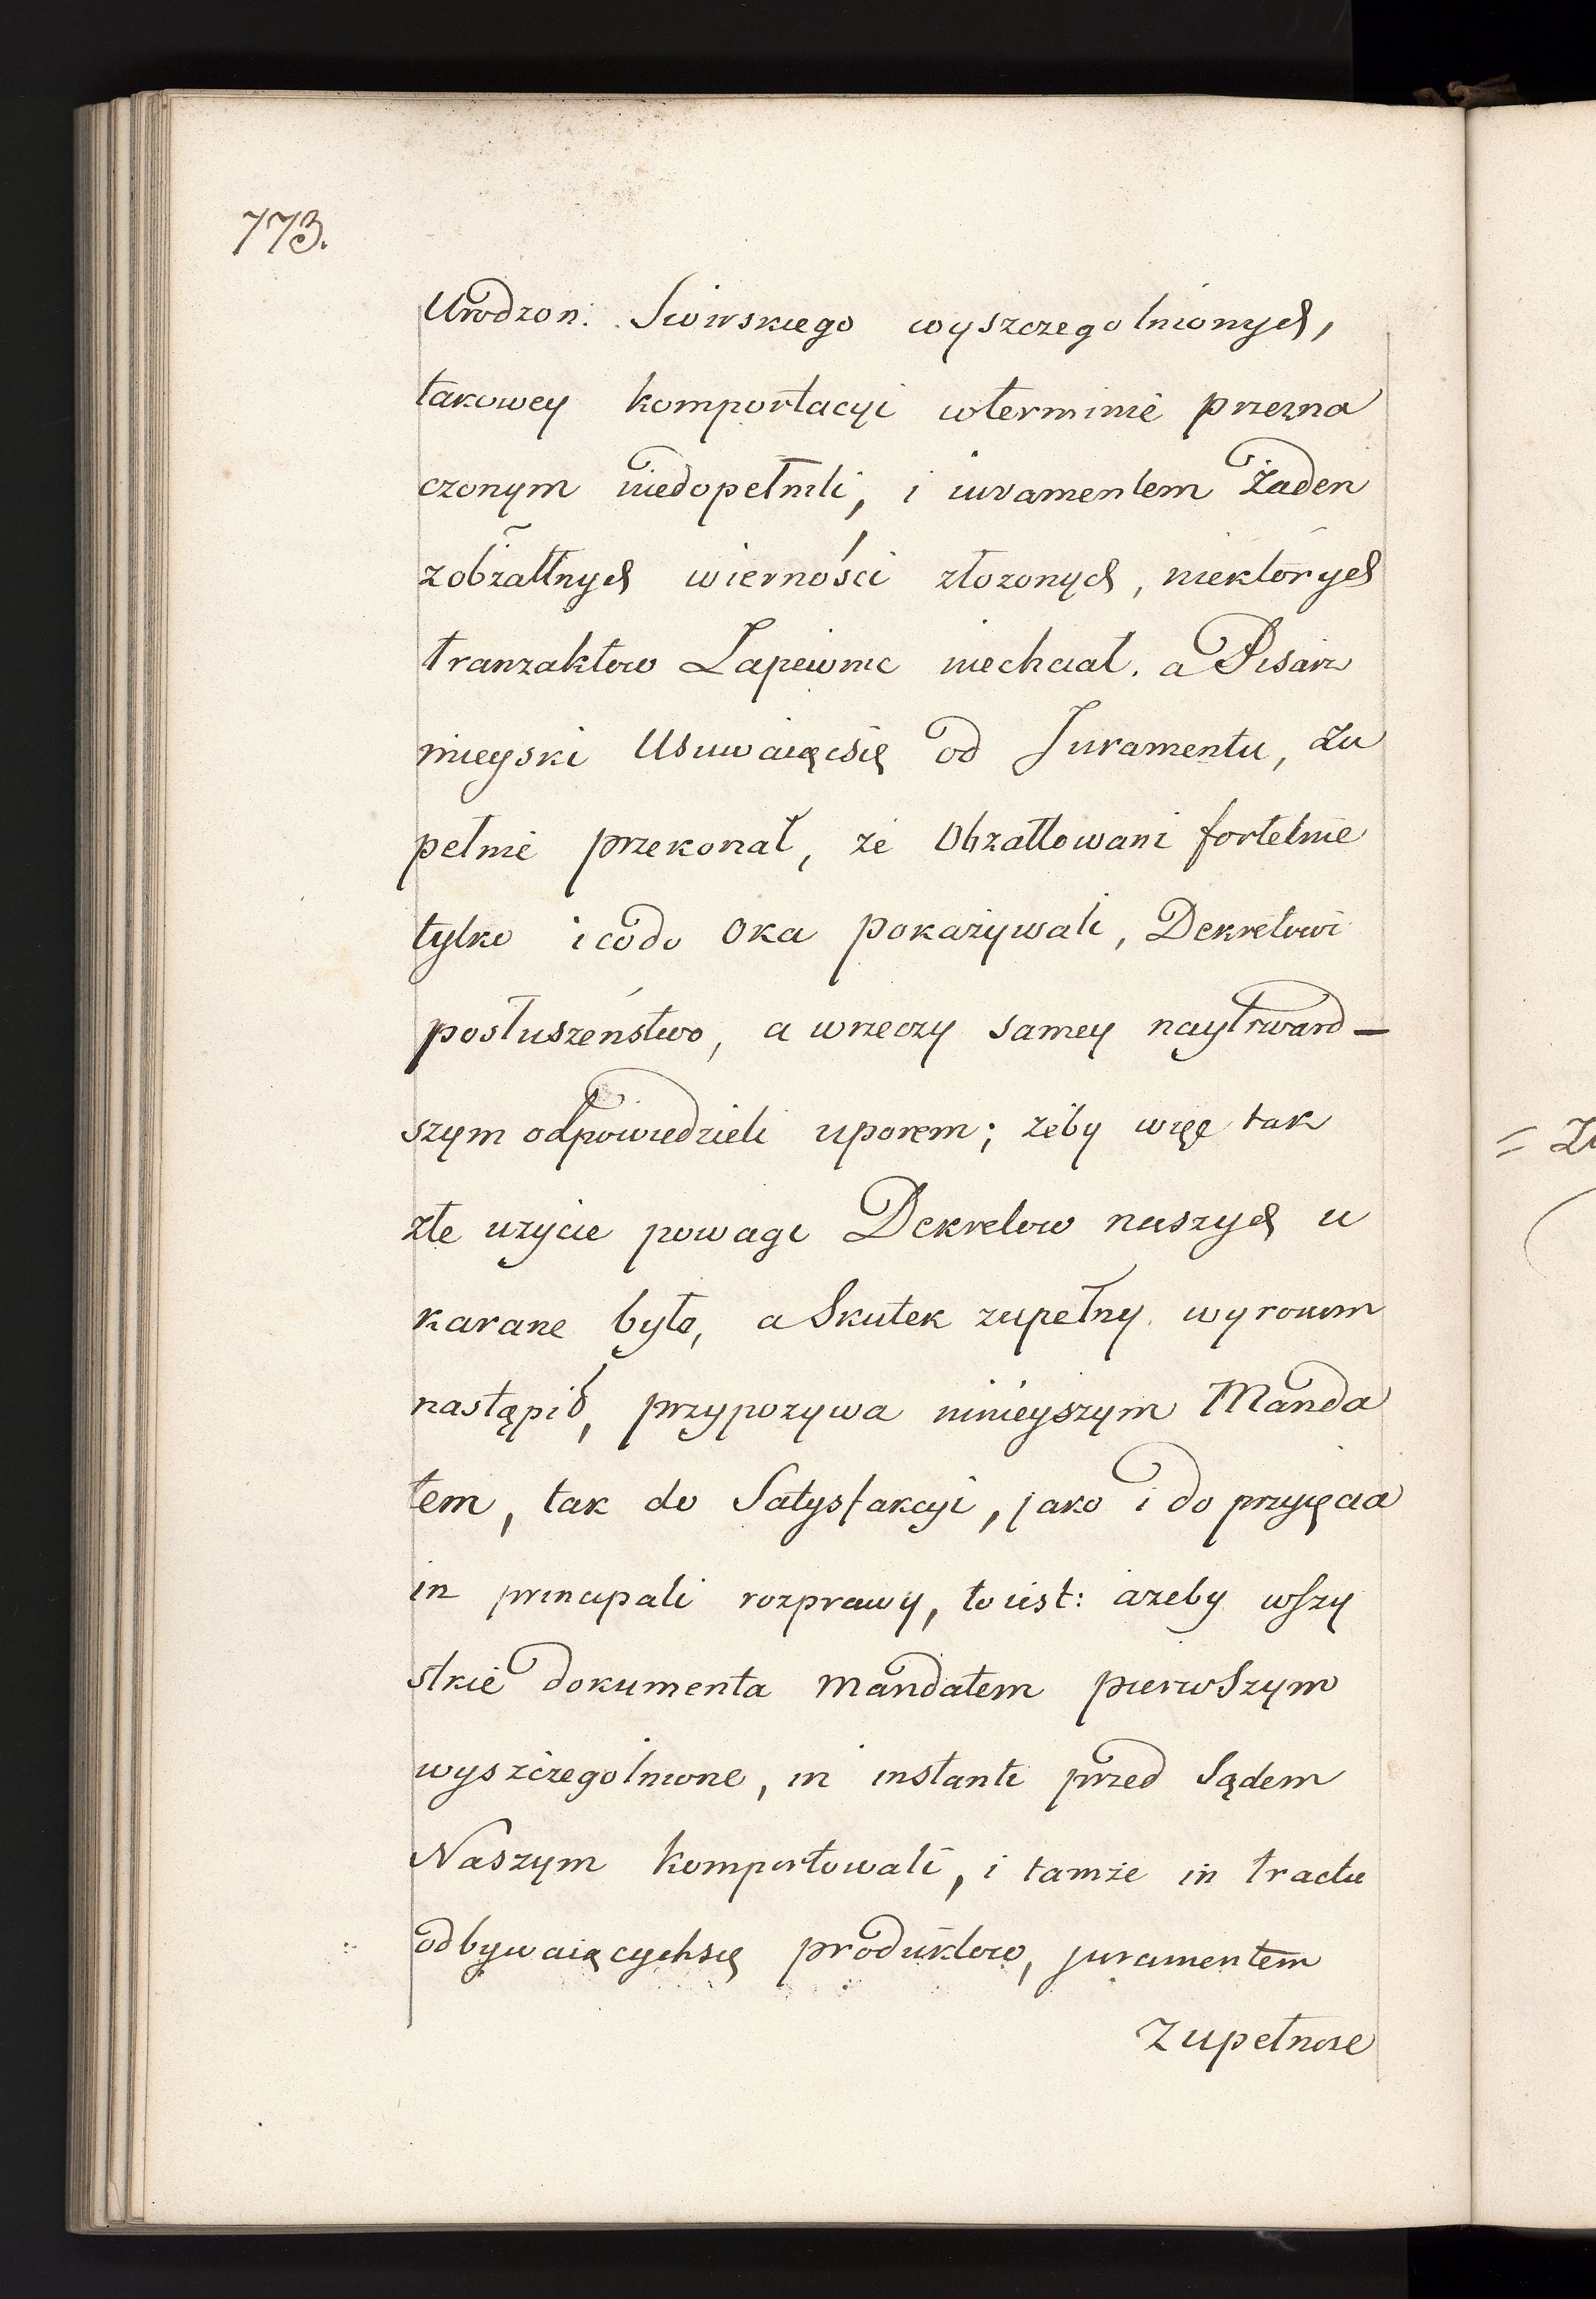 773.
Urodzon: Swirskiego wyszczegolnionych,
takowey komportacyi wterminie przezna
czonym niedopełnili, i iuramentem Żaden
zobżałłnych wierności złożonych, niektórych
tranzaktow Zapewnić niechciał. a Pisarz
mieyski Usuwaiącsię od Juramentu, Zu
pełnie przekonał, że Obżałłowani fortelnie
tylko i codo Oka pokazywali, Dekretowi
posłuszeństwo, a wrzeczy samey naytward-
szym odpowiedzieli uporem; żeby więc tak
złe użycie powagi Dekretow naszych u
karane było, a Skutek zupełny wyrokom
nastąpił, przypozywa ninieyszym Manda
tem, tak do Satysfakcyi, jako i do przyięcia
in principali rozprawy, toiest: ażeby wszy
stkie dokumenta mandatem pierwszym
wyszczegolnione, in instanti przed Sądem
Naszym komportowali, i tamże in tractu
odbywaiącychsię produktow, juramentem
Zupełność
= Zu